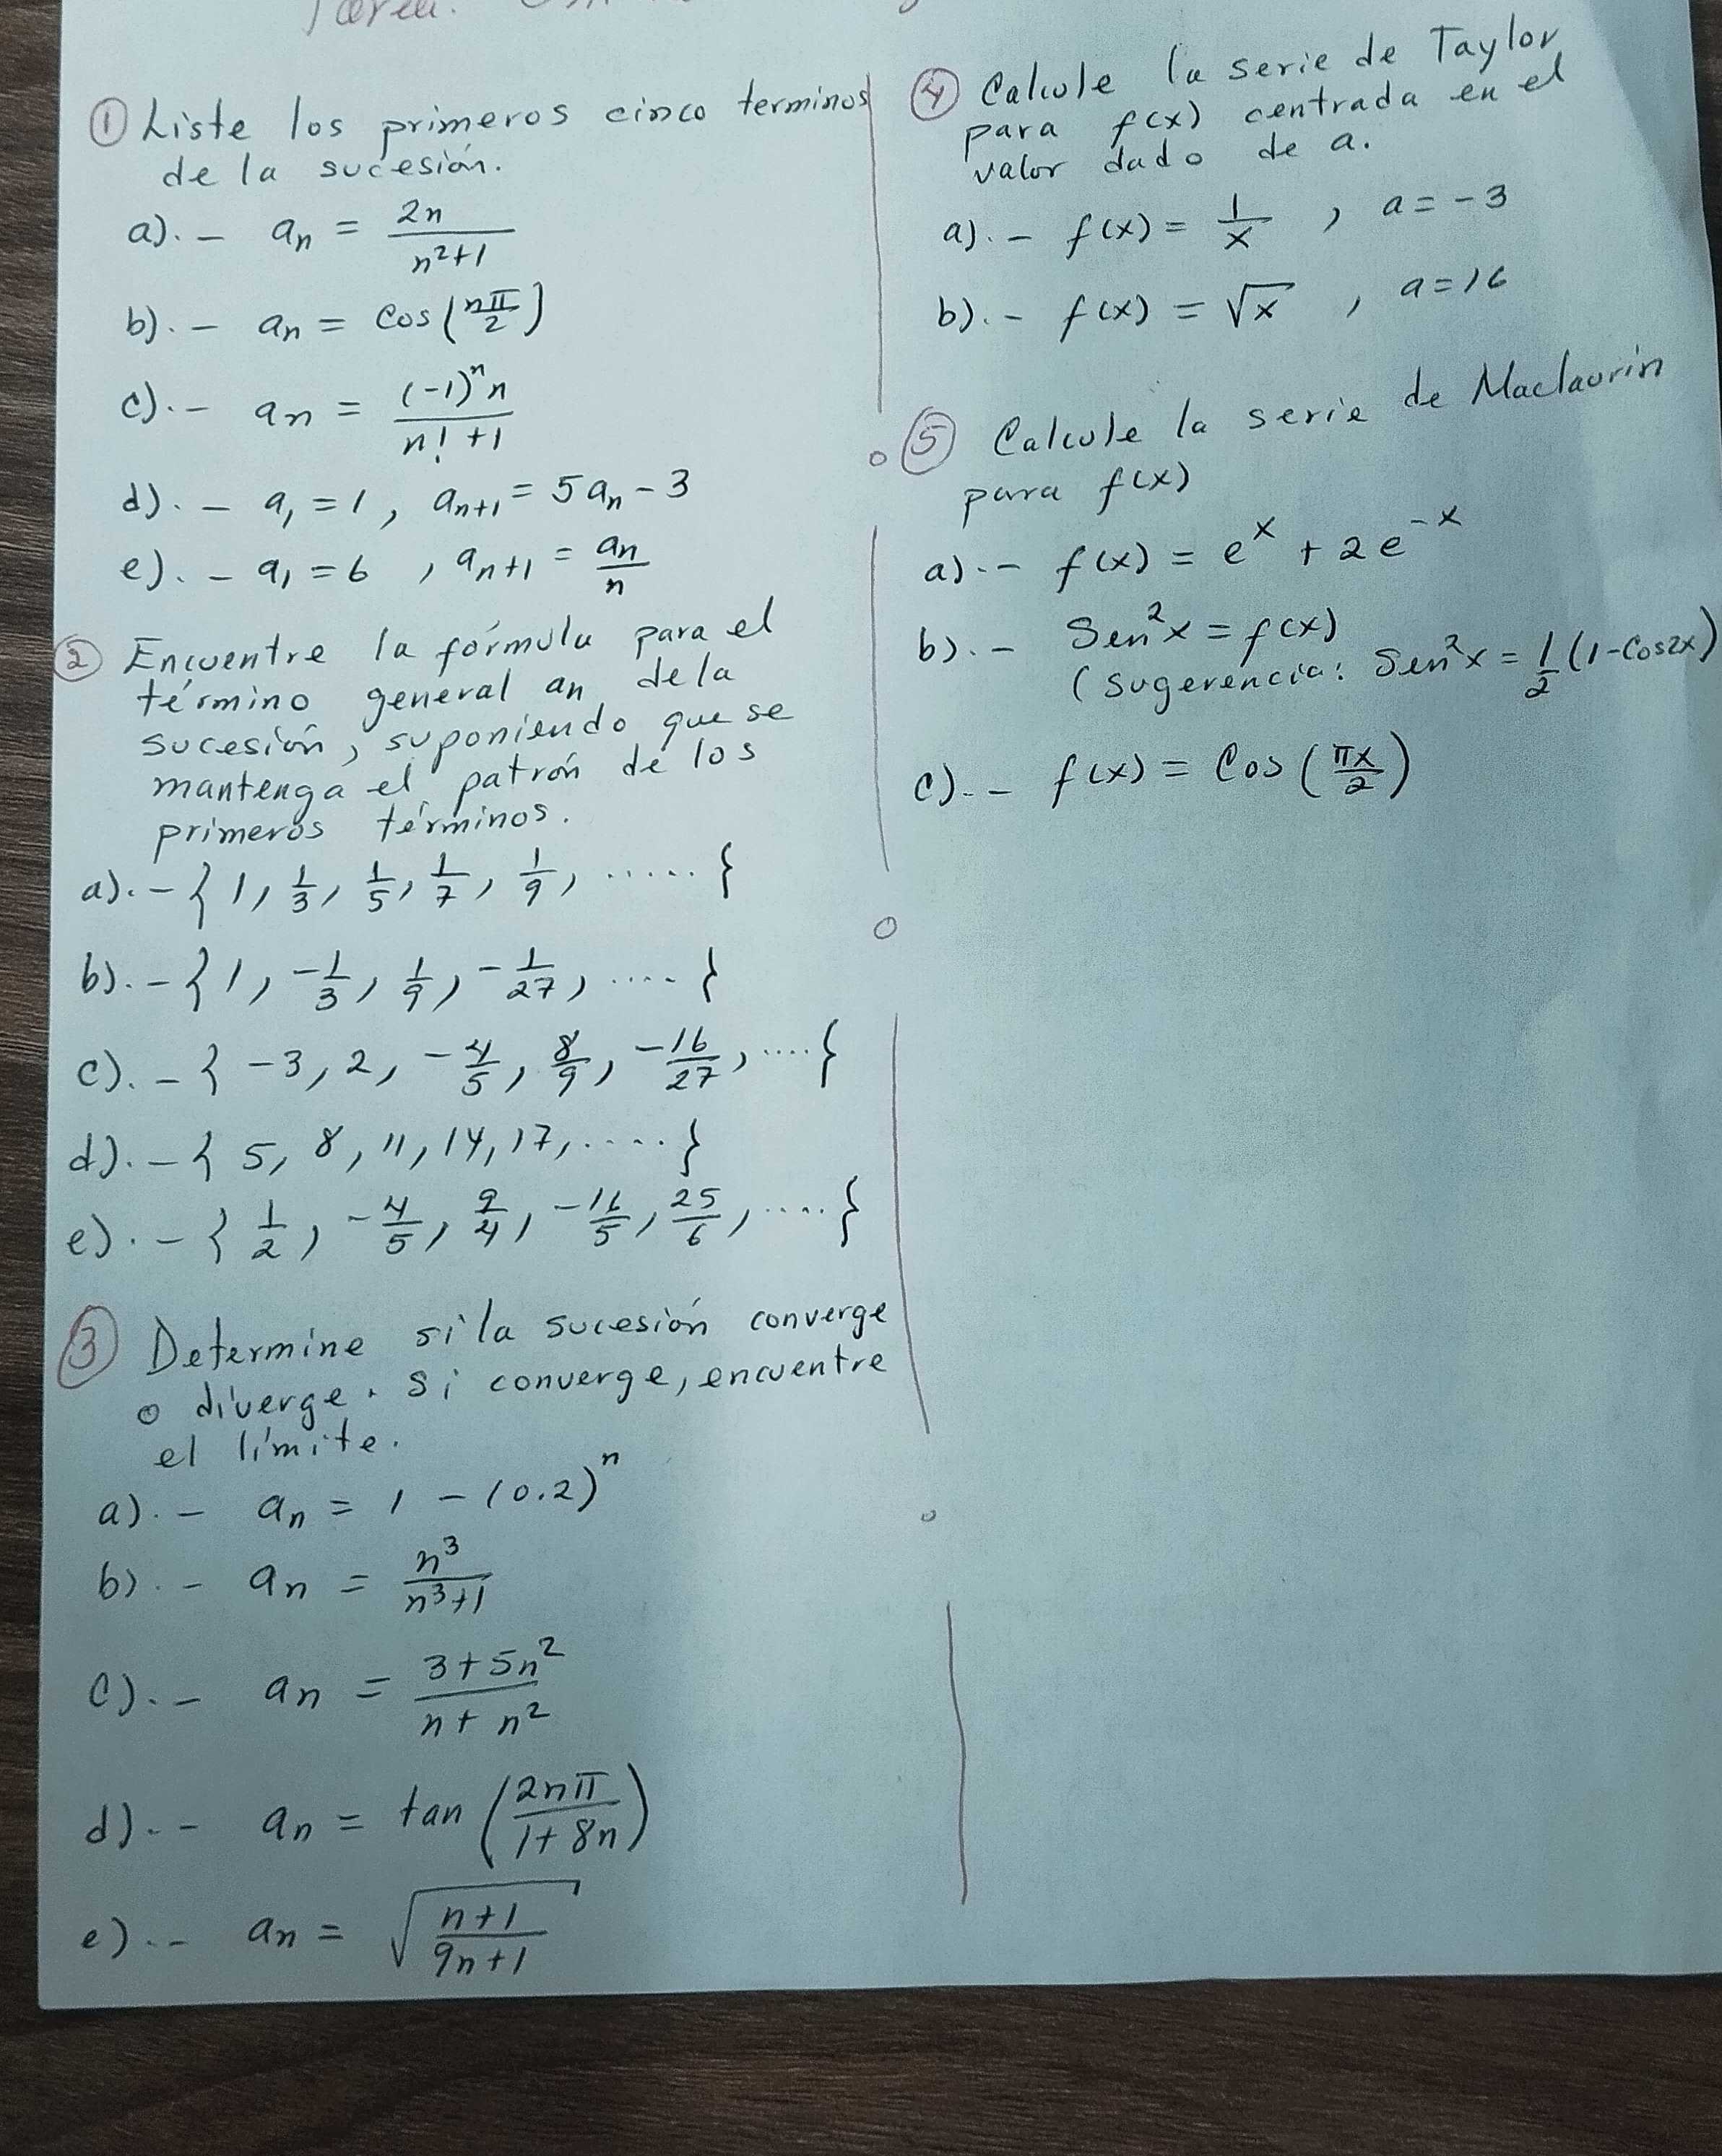 Tarea.
① Liste los primeros cinco terminos
de la sucesión.
a).- an = 2n / n²+1
b).- an = Cos(nπ/2)
c).- an = (-1)ⁿn / n!+1
d).- a₁ = 1, an+1 = 5an - 3
e).- a₁ = 6, an+1 = an/n
② Encuentre la fórmula para el
término general an de la
sucesión, suponiendo que se
mantenga el patrón de los
primeros términos.
a).- {1, 1/3, 1/5, 1/7, 1/9, ......}
b).- {1, -1/3, 1/9, -1/27, .....}
c).- {-3, 2, -4/5, 8/9, -16/27, ....}
d).- {5, 8, 11, 14, 17, .....}
e).- {1/2, -4/5, 9/4, -16/5, 25/6, ....}
③ Determine si la sucesión converge
o diverge. Si converge, encuentre
el límite.
a).- an = 1 - (0.2)ⁿ
b).- an = n³ / n³+1
c).- an = 3+5n² / n+n²
d).- an = tan(2nπ / 1+8n)
e).- an = √(n+1 / 9n+1)
④ Calcule la serie de Taylor
para f(x) centrada en el
valor dado de a.
a).- f(x) = 1/x , a = -3
b).- f(x) = √x , a = 16
⑤ Calcule la serie de Maclaurin
para f(x)
a).- f(x) = eˣ + 2e⁻ˣ
b).- Sen²x = f(x)
(sugerencia: Sen²x = 1/2 (1-Cos2x)
c).- f(x) = Cos(πx/2)